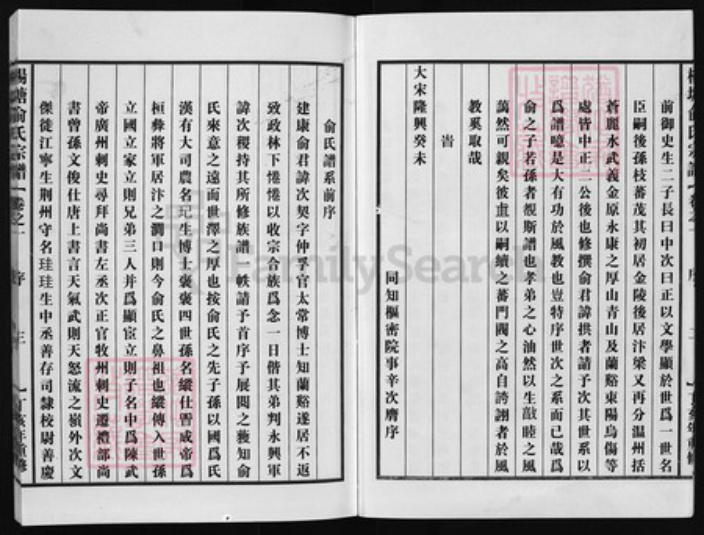 前御史生二子長曰中次曰正以文學顯於世爲一世名
臣嗣後孫枝蕃茂其初居金陵後居汴梁又再分温州括
蒼麗水武義金原永康之厚山青山及蘭谿東陽烏傷等
處皆中正二公後也修撰俞君諱拱者請予次其世系以
爲譜噫是大有功於風教也豈特序世次之系而已哉爲
俞之子若孫者覩斯譜也孝弟之心油然以生敦睦之風
藹然可親矣彼
以嗣續之蕃門閥之高自誇詡者於風
教奚取哉
旹
大宋隆興癸未
同知樞密院事辛次膺序
楊塘俞氏宗譜
卷之一
序
三
丁亥年重修
俞氏譜系前序
建康俞君諱次契字仲孚官太常博士知蘭谿遂居不返
致政林下惓惓以收宗合族爲念一日偕其弟判永興軍
諱次稷持其所修族譜一帙請予首序予展閱之獲知俞
氏來意之遠而世澤之厚也按俞氏之先子孫以國爲氏
漢有大司農名
生博士褒褒四世孫名縱仕晉成帝爲
桓彝將軍居汴之澗口則今俞氏之鼻祖也縱傳入世孫
立國立家立則兄弟三人并爲顯宦立則子名中爲陳武
帝廣州刺史尋拜尚書左丞次正官牧州刺史遷禮部尚
書曾孫文俊仕唐上書言天氣武則天怒流之嶺外次文
傑徙江寧生荆州守名珪珪生中丞善存司隸校尉善慶
FamilySearch